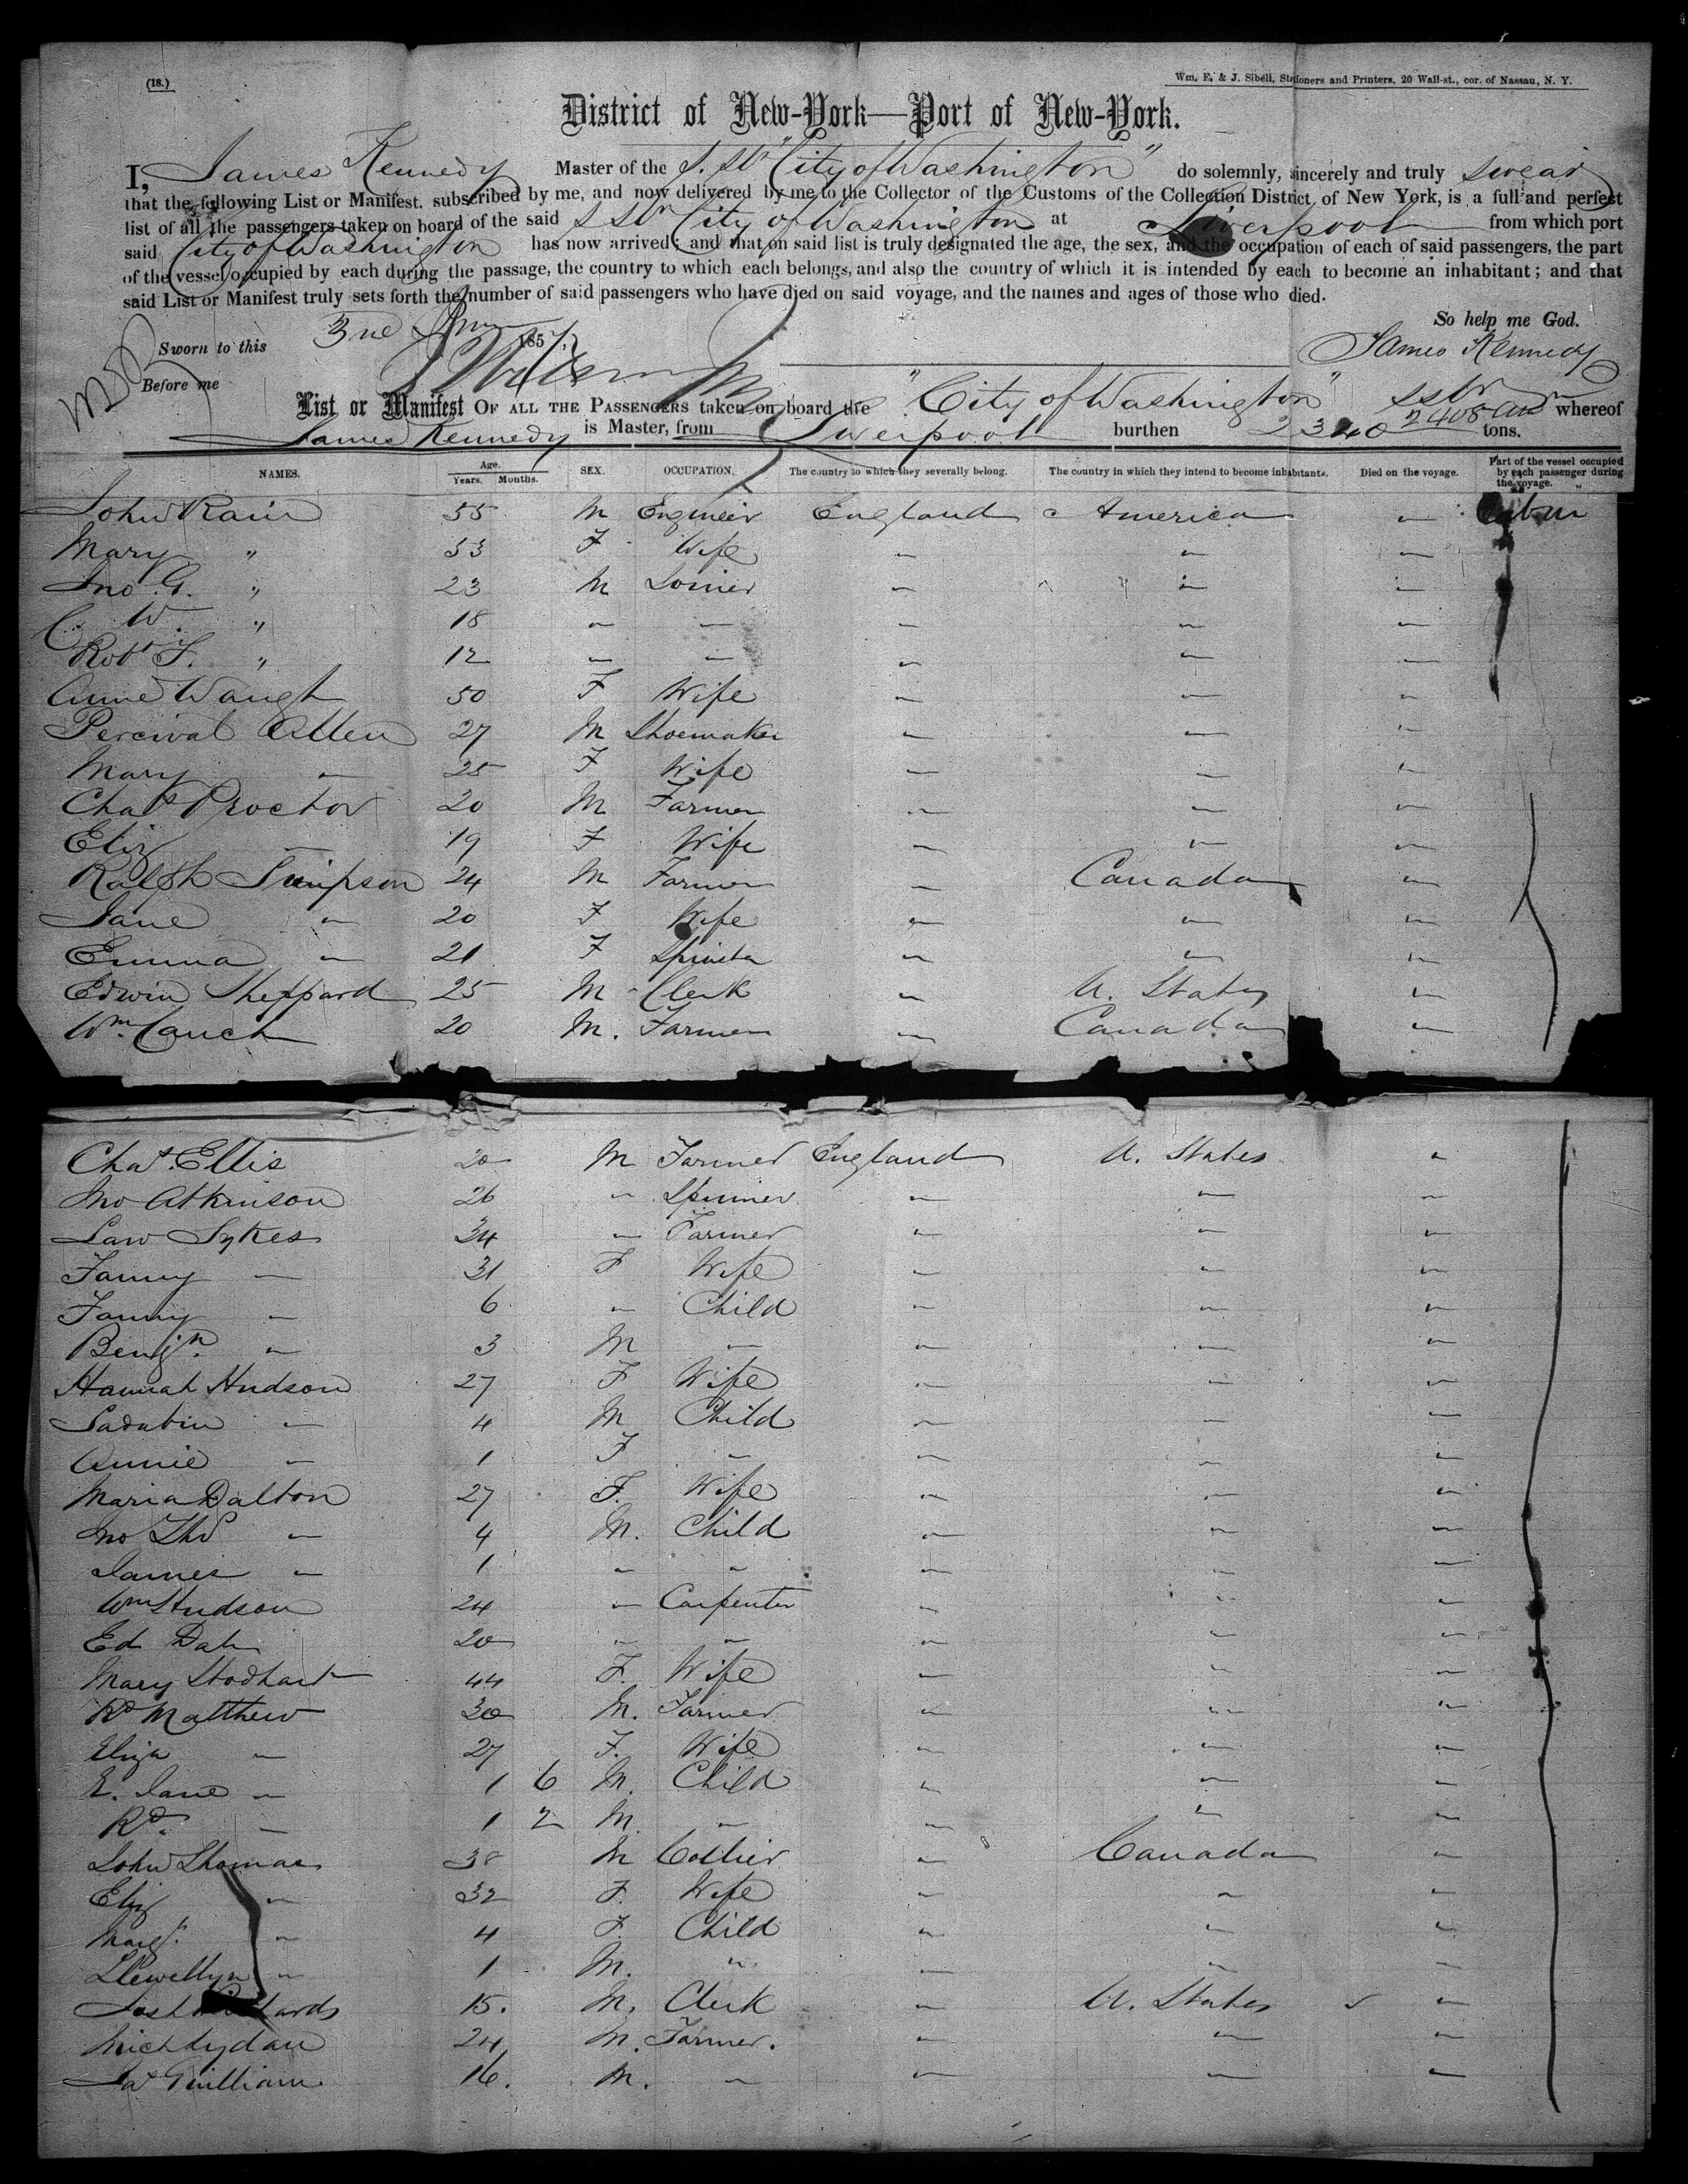 (18.)
Wm. E. & J. Sibell, Stationers and Printers, 20 Wall-st., cor. of Nassau, N. Y.
District of New-York—Port of New-York.
I, James Kennedy Master of the S. Str "City of Washington" do solemnly, sincerely and truly swear
that the following List or Manifest, subscribed by me, and now delivered by me to the Collector of the Customs of the Collection District of New York, is a full and perfect
list of all the passengers taken on board of the said S Str City of Washington at Liverpool from which port
said City of Washington has now arrived; and that on said list is truly designated the age, the sex, and the occupation of each of said passengers, the part
of the vessel occupied by each during the passage, the country to which each belongs, and also the country of which it is intended by each to become an inhabitant; and that
said List or Manifest truly sets forth the number of said passengers who have died on said voyage, and the names and ages of those who died.
So help me God.
Sworn to this 3rd 1857 James Kennedy
Before me
List or Manifest OF ALL THE PASSENGERS taken on board the "City of Washington" SStr whereof
James Kennedy is Master, from Liverpool burthen 2340 2408 tons.
NAMES. Age. Years. Months. SEX. OCCUPATION. The country to which they severally belong. The country in which they intend to become inhabitants. Died on the voyage. Part of the vessel occupied by each passenger during the voyage.
John Rain 55 M Engineer England America " Cabin
Mary " 53 F Wife " " "
Jno. G. " 23 M Joiner " " "
C. W. " 18 " " " " "
Robt F. " 12 " " " " "
Anne Waugh 50 F Wife " " "
Percival Allen 27 M Shoemaker " " "
Mary " 25 F Wife " " "
Chas Proctor 20 M Farmer " " "
Eliz " 19 F Wife " " "
Ralph Simpson 24 M Farmer " Canada "
Jane " 20 F Wife " " "
Emma " 21 F Spinster " " "
Edwin Sheppard 25 M Clerk " U. States "
Wm. Couch 20 M. Farmer " Canada "
Chas. Ellis 20 M Farmer England U. States "
Jno Atkinson 26 " Spinner " " "
Law Sykes 34 " Farmer " " "
Fanny " 31 F Wife " " "
Fanny " 6 " Child " " "
Benjn. " 3 M " " " "
Hannah Hudson 27 F Wife " " "
" 4 M Child " " "
Annie " 1 F " " " "
Maria Dalton 27 F. Wife " " "
Jno Thos " 4 M. Child " " "
James " 1 " " " " "
Wm Hudson 24 " Carpenter " " "
Ed 20 " " " " "
Mary Stodhart 44 F. Wife " " "
Rd Matthew 30 M. Farmer " " "
Eliza " 27 F. Wife " " "
E. Jane " 1 6 M. Child " " "
Rd. " 1 2 M. " " " "
John Thomas 38 M Collier " Canada "
Eliz " 32 F. Wife " " "
Margt. " 4 F. Child " " "
Llewellyn " 1 M. " " " "
15. M. Clerk " U. States "
Mich Lydan 24 M. Farmer. " " "
Jas Gwilliam 16. M. " " " "